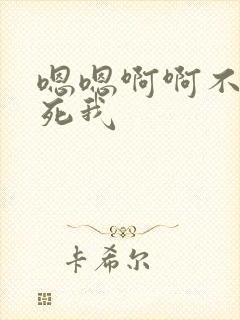 嗯嗯啊啊不
死我
卡希尔